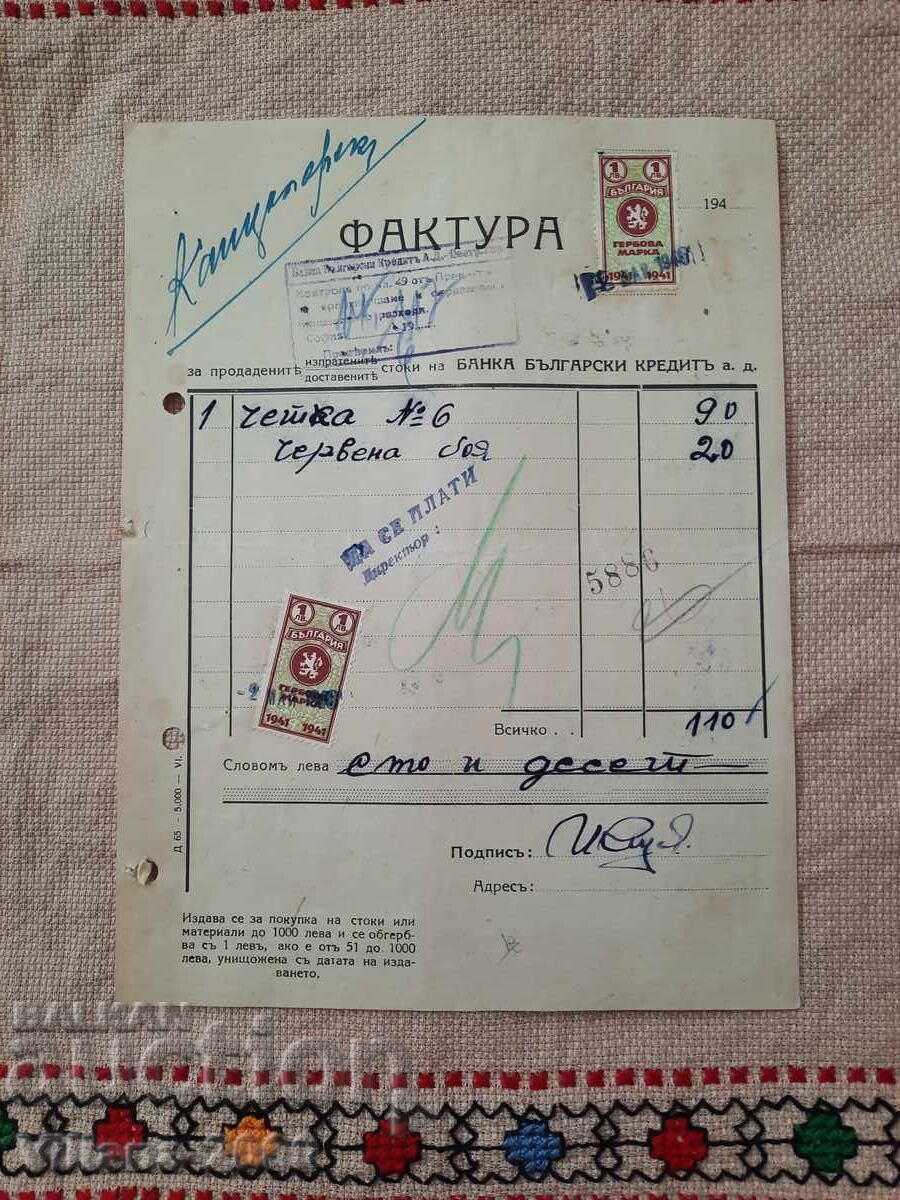 Канцеларски
1 ЛВ. 1 ЛВ.
БЪЛГАРИЯ
ГЕРБОВА
МАРКА
1941 1941
194
ФАКТУРА
Банка Български Кредитъ А.Д.
49 отъ
разходи.
София 19
Провѣрилъ:
за продаденитѣ изпратенитѣ доставенитѣ стоки на БАНКА БЪЛГАРСКИ КРЕДИТЪ а. д.
1 Четка №6 90
Червена боя 20
ДА СЕ ПЛАТИ
Директор :
5886
1 ЛВ. 1 ЛВ.
БЪЛГАРИЯ
ГЕРБОВА
МАРКА
1941 1941
Всичко . . 110
Словомъ лева сто и десет
Подписъ:
Адресъ:
Д 65 — 5.000 — VI.
Издава се за покупка на стоки или
материали до 1000 лева и се обгерб-
ва съ 1 левъ, ако е отъ 51 до 1000
лева, унищожена съ датата на изда-
ването.
BALKAN
auction